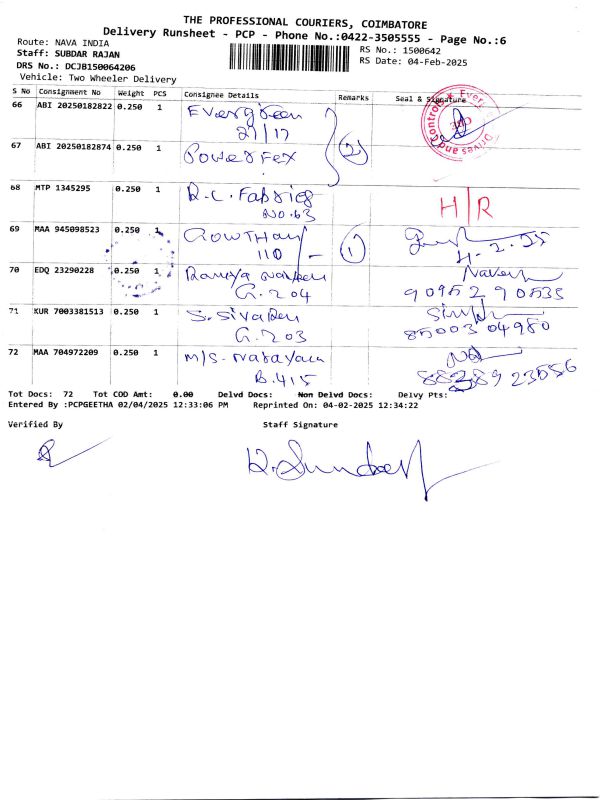 THE PROFESSIONAL COURIERS, COIMBATORE
Delivery Runsheet - PCP - Phone No.:0422-3505555 - Page No.:6
Route: NAVA INDIA RS No.: 1500642
Staff: SUBDAR RAJAN
DRS No.: DCJB150064206 RS Date: 04-Feb-2025
Vehicle: Two Wheeler Delivery
S No Consignment No Weight PCS Consignee Details Remarks Seal & Signature
66 ABI 20250182822 0.250 1 Evergreen
21/17
67 ABI 20250182874 0.250 1 Powerfex (2)
68 MTP 1345295 0.250 1 R.C. Fabrics
NO.63 H/R
69 MAA 945098523 0.250 1 GOWTHAM (1)
110 4-2-25
70 EDQ 23290228 0.250 1 Ramya Naveen Naveen
G.204 90952 90535
71 KUR 7003381513 0.250 1 S.Siva
G.203 85003 04980
72 MAA 704972209 0.250 1 M/S. Narayana
B.415
Tot Docs: 72 Tot COD Amt: 0.00 Delvd Docs: Non Delvd Docs: Delvy Pts:
Entered By :PCPGEETHA 02/04/2025 12:33:06 PM Reprinted On: 04-02-2025 12:34:22
Verified By Staff Signature